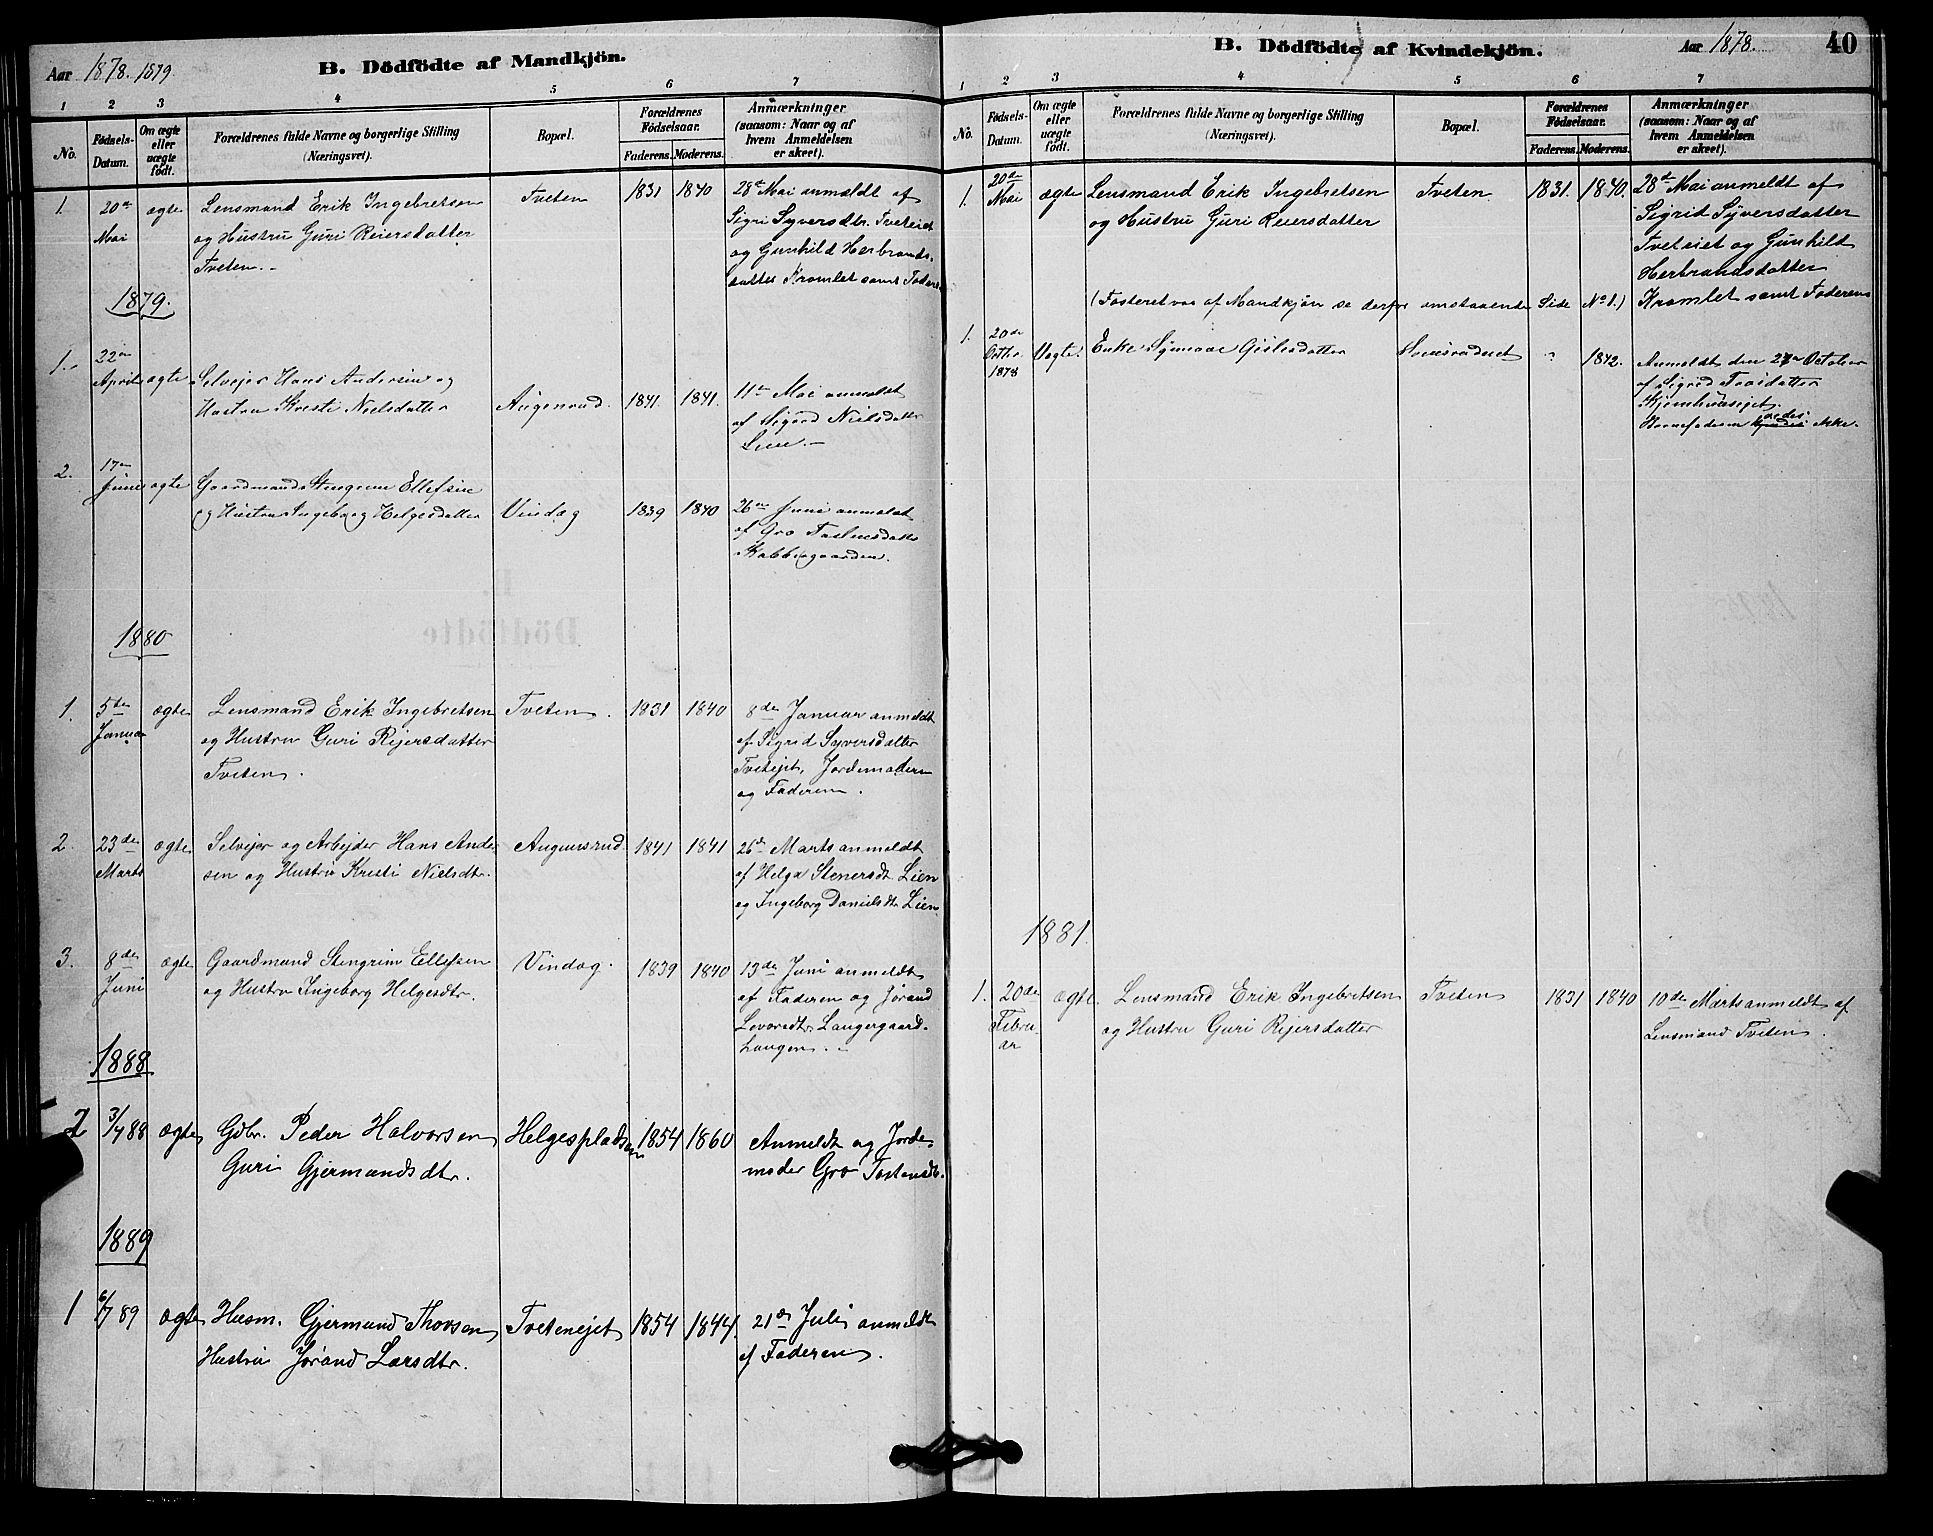 Aar 1878. 1879
B. Dödfödte af Mandkjön.
1 2 3 4 5 6 7
No.
Fødsels-
Datum.
Om ægte
eller
uægte
født.
Forældrenes fulde Navne og borgerlige Stilling
(Næringsvei).
Bopæl.
Forældrenes
Fødselsaar.
Faderens. Moderens.
Anmærkninger
(saasom: Naar og af
hvem Anmeldelsen
er skeet).
1. 20de ægte Lensmand Erik Ingebretsen Tveten 1831 1840 28de Mai anmeldt af
Mai og Hustru Guri Reiersdatter Sigri Syversdtr. Tveteiet
Tveten. og Gunhild Herbrands-
datter Kromlet samt Faderen
1879.
1. 22de
April ægte Selvejer Hans Andersen og
Hustru Kristi Nielsdatter 1841. 1841. 11te Mai anmeldt
af Sigrid Nielsdatter
Lien.
2. 17de
Juni ægte Gaardmand Stengrim Ellefsen
og Hustru Ingeborg Helgesdatter Vindeg 1839 1840 26de Juni anmeldt
af Gro
1880
1. 5te ægte Lensmand Erik Ingebretsen Tveten. 1831 1840 8de Januar anmeldt
Januar og Hustru Guri Rejersdatter af Sigrid Syversdatter
Tveten. Tvetejet, Jordemoderen
og Faderen.
2. 23de ægte Selvejer og Arbejder Hans Ander- Augunsrud 1841 1841 26de Marts anmeldt
Marts sen og Hustru Kristi Nielsdtr. af Helga Stenersdt. Lien
og Ingeborg Danielsdtr. Lien
3. 8de ægte Gaardmand Stengrim Ellefsen Vindeg. 1839 1840 13de Juni anmeldt
Juni og Hustru Ingeborg Helgesdtr. af Faderen og Jørand
Levorsdtr. Langergaard-
Haugen.
1888
2 3/7 88 ægte Gdbr. Peder Halvorsen Helgespladsen 1854 1860 Anmeldt og Jorde-
Guri Gjermundsdtr. moder Gro Tostensdtr.
1889
1 6/7 89 ægte Husm. Gjermund Thorsen Tvetenejet 1854 1844. 21de Juli anmeldt
Hustru Jørand Larsdtr. af Faderen.
B. Dödfödte af Kvindekjön.
Aar 1878.
40
1 2 3 4 5 6 7
No.
Fødsels-
Datum.
Om ægte
eller
uægte
født.
Forældrenes fulde Navne og borgerlige Stilling
(Næringsvei).
Bopæl.
Forældrenes
Fødselsaar.
Faderens. Moderens.
Anmærkninger
(saasom: Naar og af
hvem Anmeldelsen
er skeet).
1. 20de ægte Lensmand Erik Ingebretsen Tveten 1831. 1840. 28de Mai anmeldt af
Mai og Hustru Guri Reiersdatter Sigrid Syversdatter
Tveteiet og Gunhild
Herbrandsdatter
(Fosteret var af Mandkjøn se derfor omstaaende Side No 1.) Kromlet samt Faderen
1. 20de
Octbr. Uægte. Enke Gislesdatter " 1842. Anmeldt den 27de October
1878 af Sigrid
Barnefaderen opgivedes ikke.
1881.
1. 20de ægte. Lensmand Erik Ingebretsen Tveten 1831 1840 10de Marts anmeldt af
Febru- og Hustru Guri Rejersdatter Lensmand Tveten.
ar